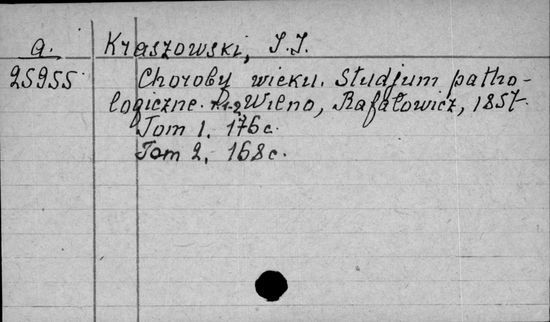 a. Kraszowski, I. I.
25955 Choroby wieku. Studjum patho-
logiczne. T. 1-2, Wilno, Rafałowicz, 1857.
Tom 1. 176 c.
Tom 2. 168 c.